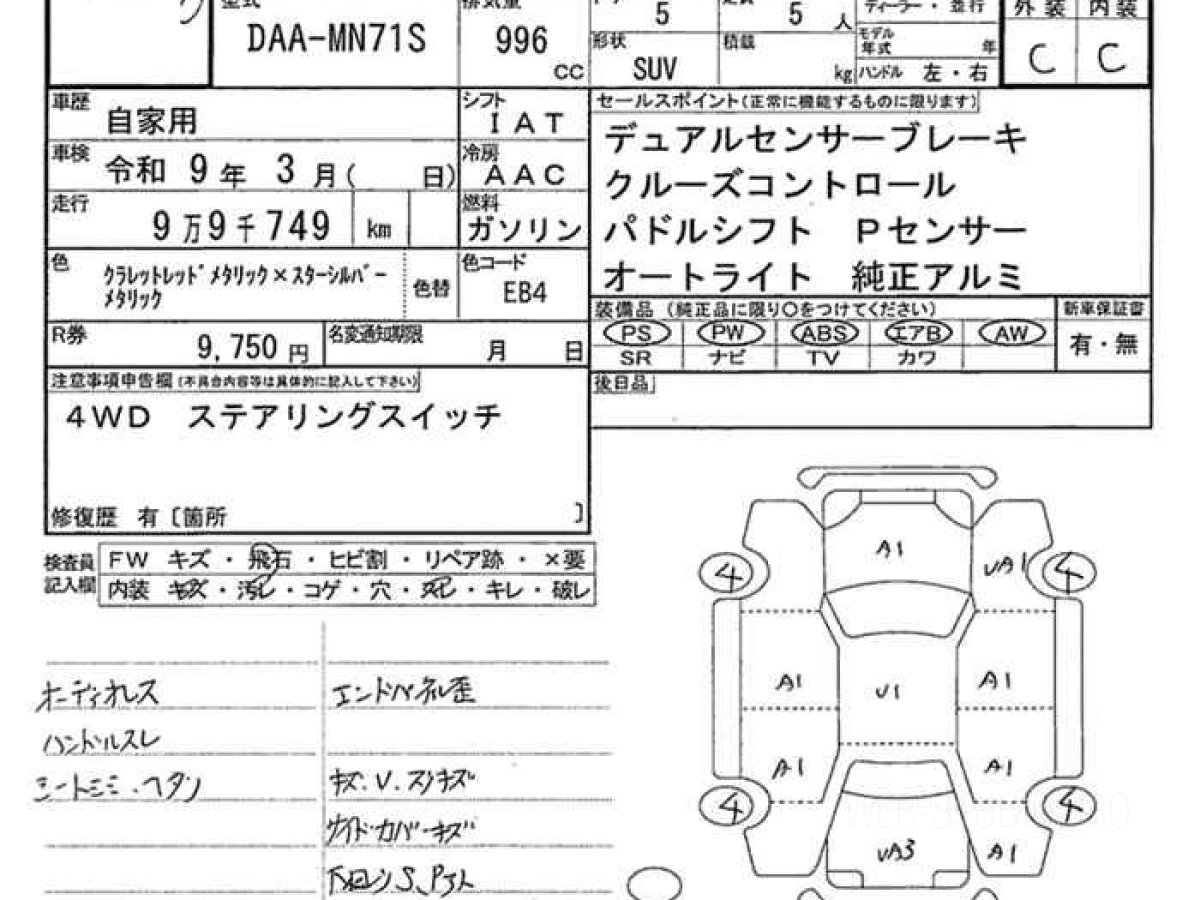 型式 DAA-MN71S
排気量 996 CC
5
定員 5 人
ディーラー・並行
外装 内装
C C
形状 SUV
積載 kg
モデル年式 年
ハンドル 左・右
車歴 自家用
シフト IAT
車検 令和 9年 3月( 日)
冷房 AAC
走行 9万9千749 km
燃料 ガソリン
色 クラレットレッドメタリック×スターシルバーメタリック
色替
色コード EB4
R券 9,750 円
名変通知期限 月 日
セールスポイント(正常に機能するものに限ります)
デュアルセンサーブレーキ
クルーズコントロール
パドルシフト Pセンサー
オートライト 純正アルミ
装備品 (純正品に限り○をつけてください)
PS PW ABS エアB AW
SR ナビ TV カワ
新車保証書
有・無
後日品
注意事項申告欄(不具合内容等は具体的に記入して下さい)
4WD ステアリングスイッチ
修復歴 有〔箇所 〕
検査員記入欄
FW キズ・飛石・ヒビ割・リペア跡・×要
内装 キズ・汚レ・コゲ・穴・スレ・キレ・破レ
オーディオレス
ハンドルスレ
シートシミ・ヘタリ
エンドパネル歪
キズ.V.スリキズ
サイドカバーキズ
下回リS、Pアト
A1
UA1
4
4
A1
U1
A1
A1
A1
4
4
UA3
A1